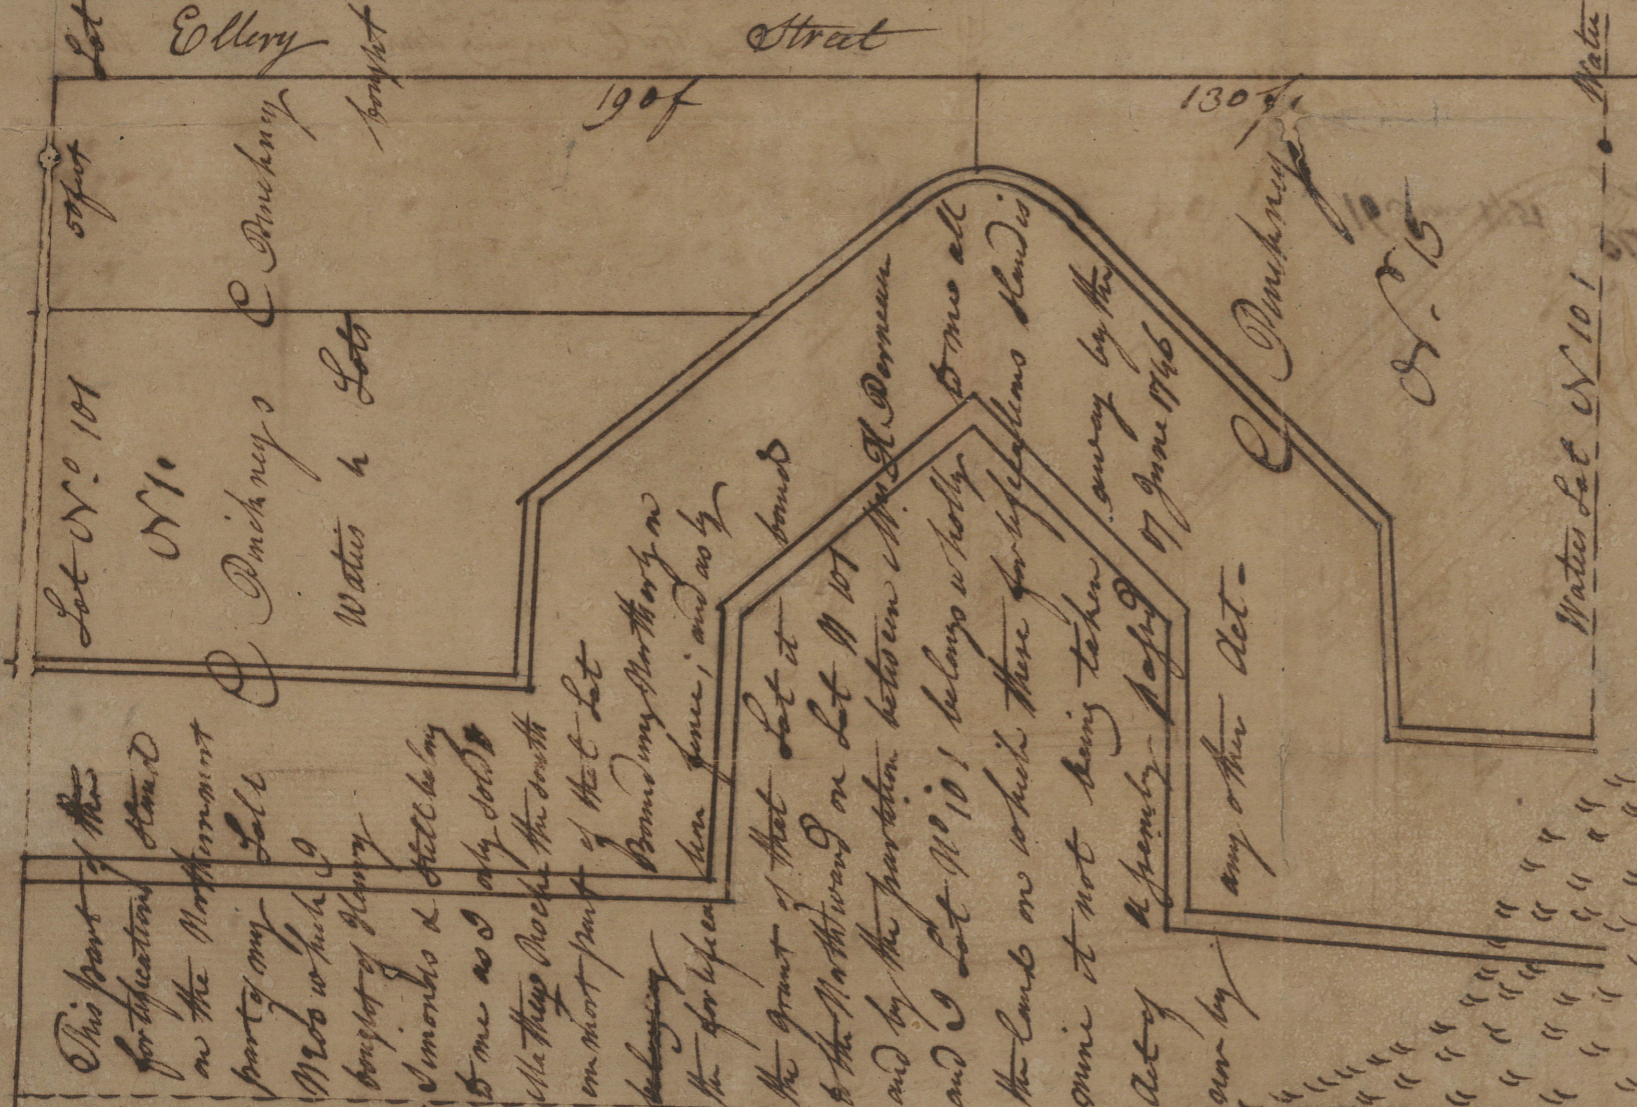 Ellery Street
190 f
130 f
Lot
bought
50 feet
C Pinckney
Lot No. 101
N 1.
C Pinckneys
Water Lots
C Pinckney
No. 15
Waties Lot N 101
Water
This part of the
fortifications stand
on the Northernmost
part of my Lott
N 200 which I
bought of Henry
Simonds & still belong
to me as I only sold
Mathew Roche the south
ernmost part of that Lot
belonging Bounding Northerly on
the fortification fence; and as by
the Grant of that Lot it bounds
to the Northward on Lot N 101
and by the partition between Mr. H Perneau
and I Lot No 101 belongs wholly to me all
the land on which these fortifications stand is
mine it not being taken away by the
Act of Assembly passed 17 June 1746
nor by any other Act-